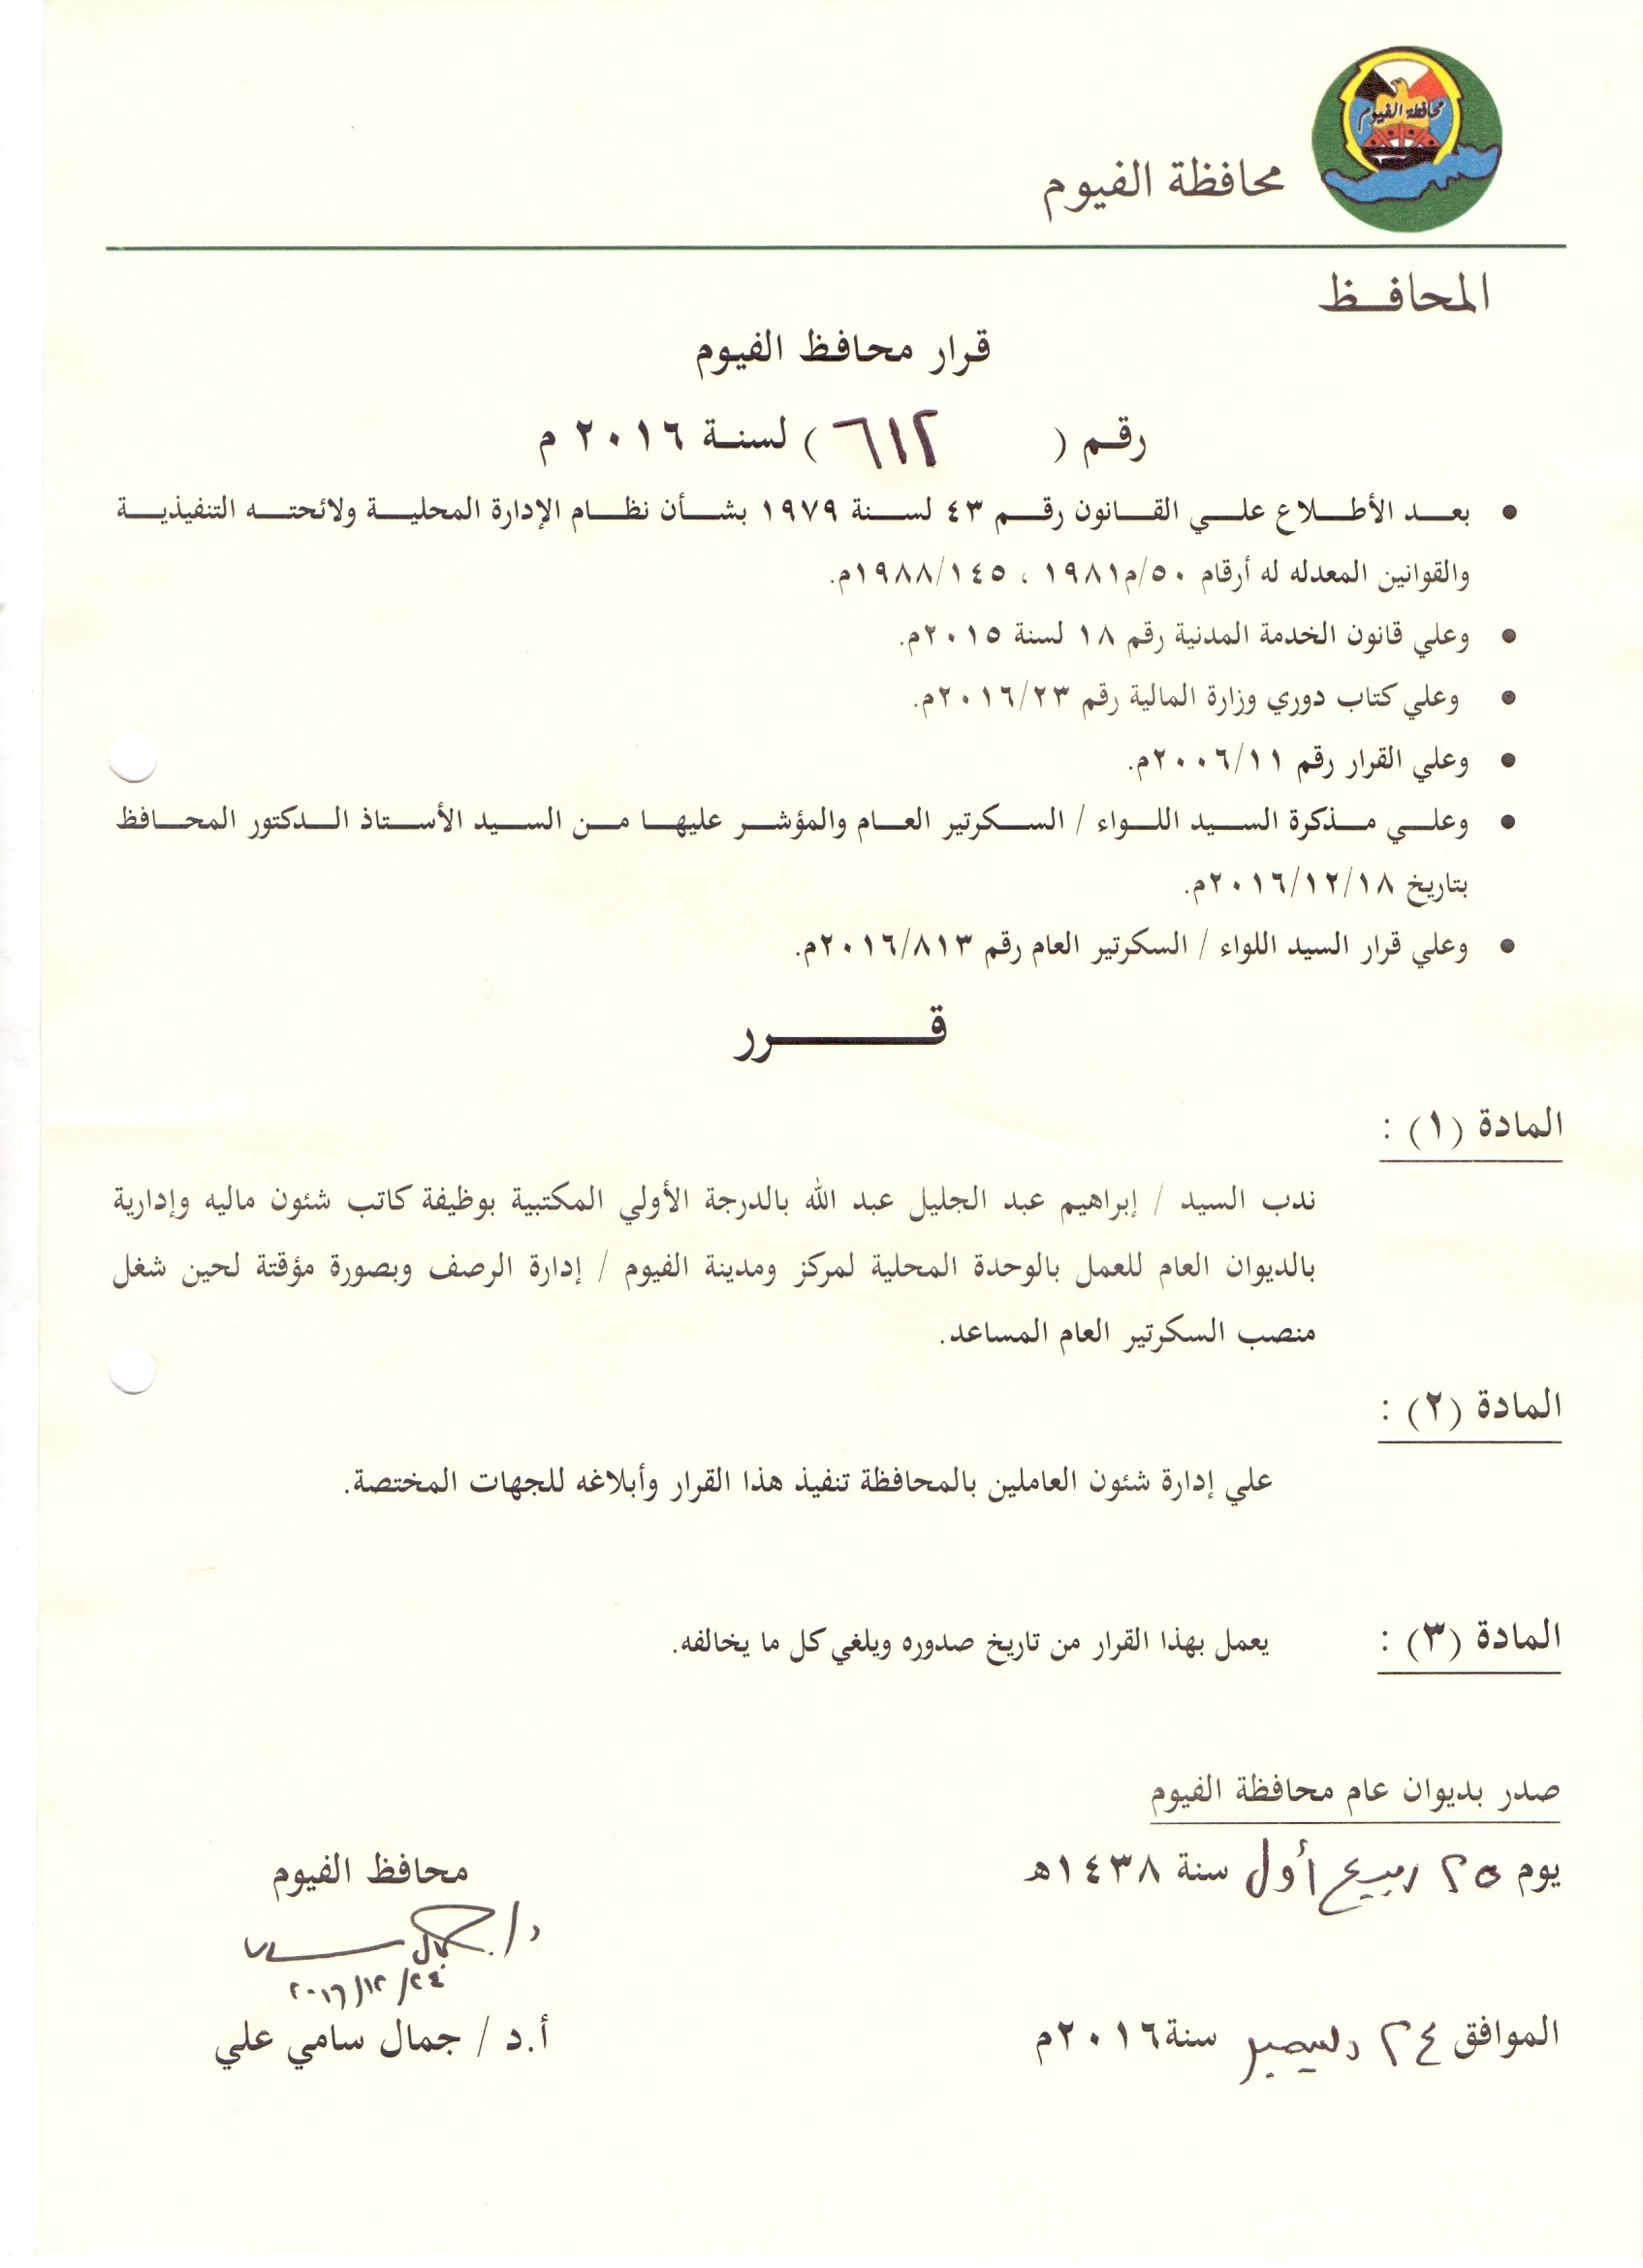 محافظة الفيوم
محافظة الفيوم
المحافـــظ
قرار محافظ الفيوم
رقم ( ٦١٢ ) لسنة ٢٠١٦ م
• بعد الأطلاع علي القانون رقم ٤٣ لسنة ١٩٧٩ بشأن نظام الإدارة المحلية ولائحته التنفيذية
والقوانين المعدله له أرقام ٥٠/م١٩٨١ ، ١٩٨٨/١٤٥م.
• وعلي قانون الخدمة المدنية رقم ١٨ لسنة ٢٠١٥م.
• وعلي كتاب دوري وزارة المالية رقم ٢٠١٦/٢٣م.
• وعلي القرار رقم ٢٠٠٦/١١م.
• وعلي مذكرة السيد اللواء / السكرتير العام والمؤشر عليها من السيد الأستاذ الدكتور المحافظ
بتاريخ ٢٠١٦/١٢/١٨م.
• وعلي قرار السيد اللواء / السكرتير العام رقم ٢٠١٦/٨١٣م.
قـــــــرر
المادة (١) :
ندب السيد / إبراهيم عبد الجليل عبد الله بالدرجة الأولي المكتبية بوظيفة كاتب شئون ماليه وإدارية
بالديوان العام للعمل بالوحدة المحلية لمركز ومدينة الفيوم / إدارة الرصف وبصورة مؤقتة لحين شغل
منصب السكرتير العام المساعد.
المادة (٢) :
علي إدارة شئون العاملين بالمحافظة تنفيذ هذا القرار وأبلاغه للجهات المختصة.
المادة (٣) : يعمل بهذا القرار من تاريخ صدوره ويلغي كل ما يخالفه.
صدر بديوان عام محافظة الفيوم
يوم ٢٥ ربيع أول سنة ١٤٣٨ه
الموافق ٢٤ ديسمبر سنة٢٠١٦م
محافظ الفيوم
د/ جمال سامي
٢٠١٦/١٢/٢٤
أ.د / جمال سامي علي